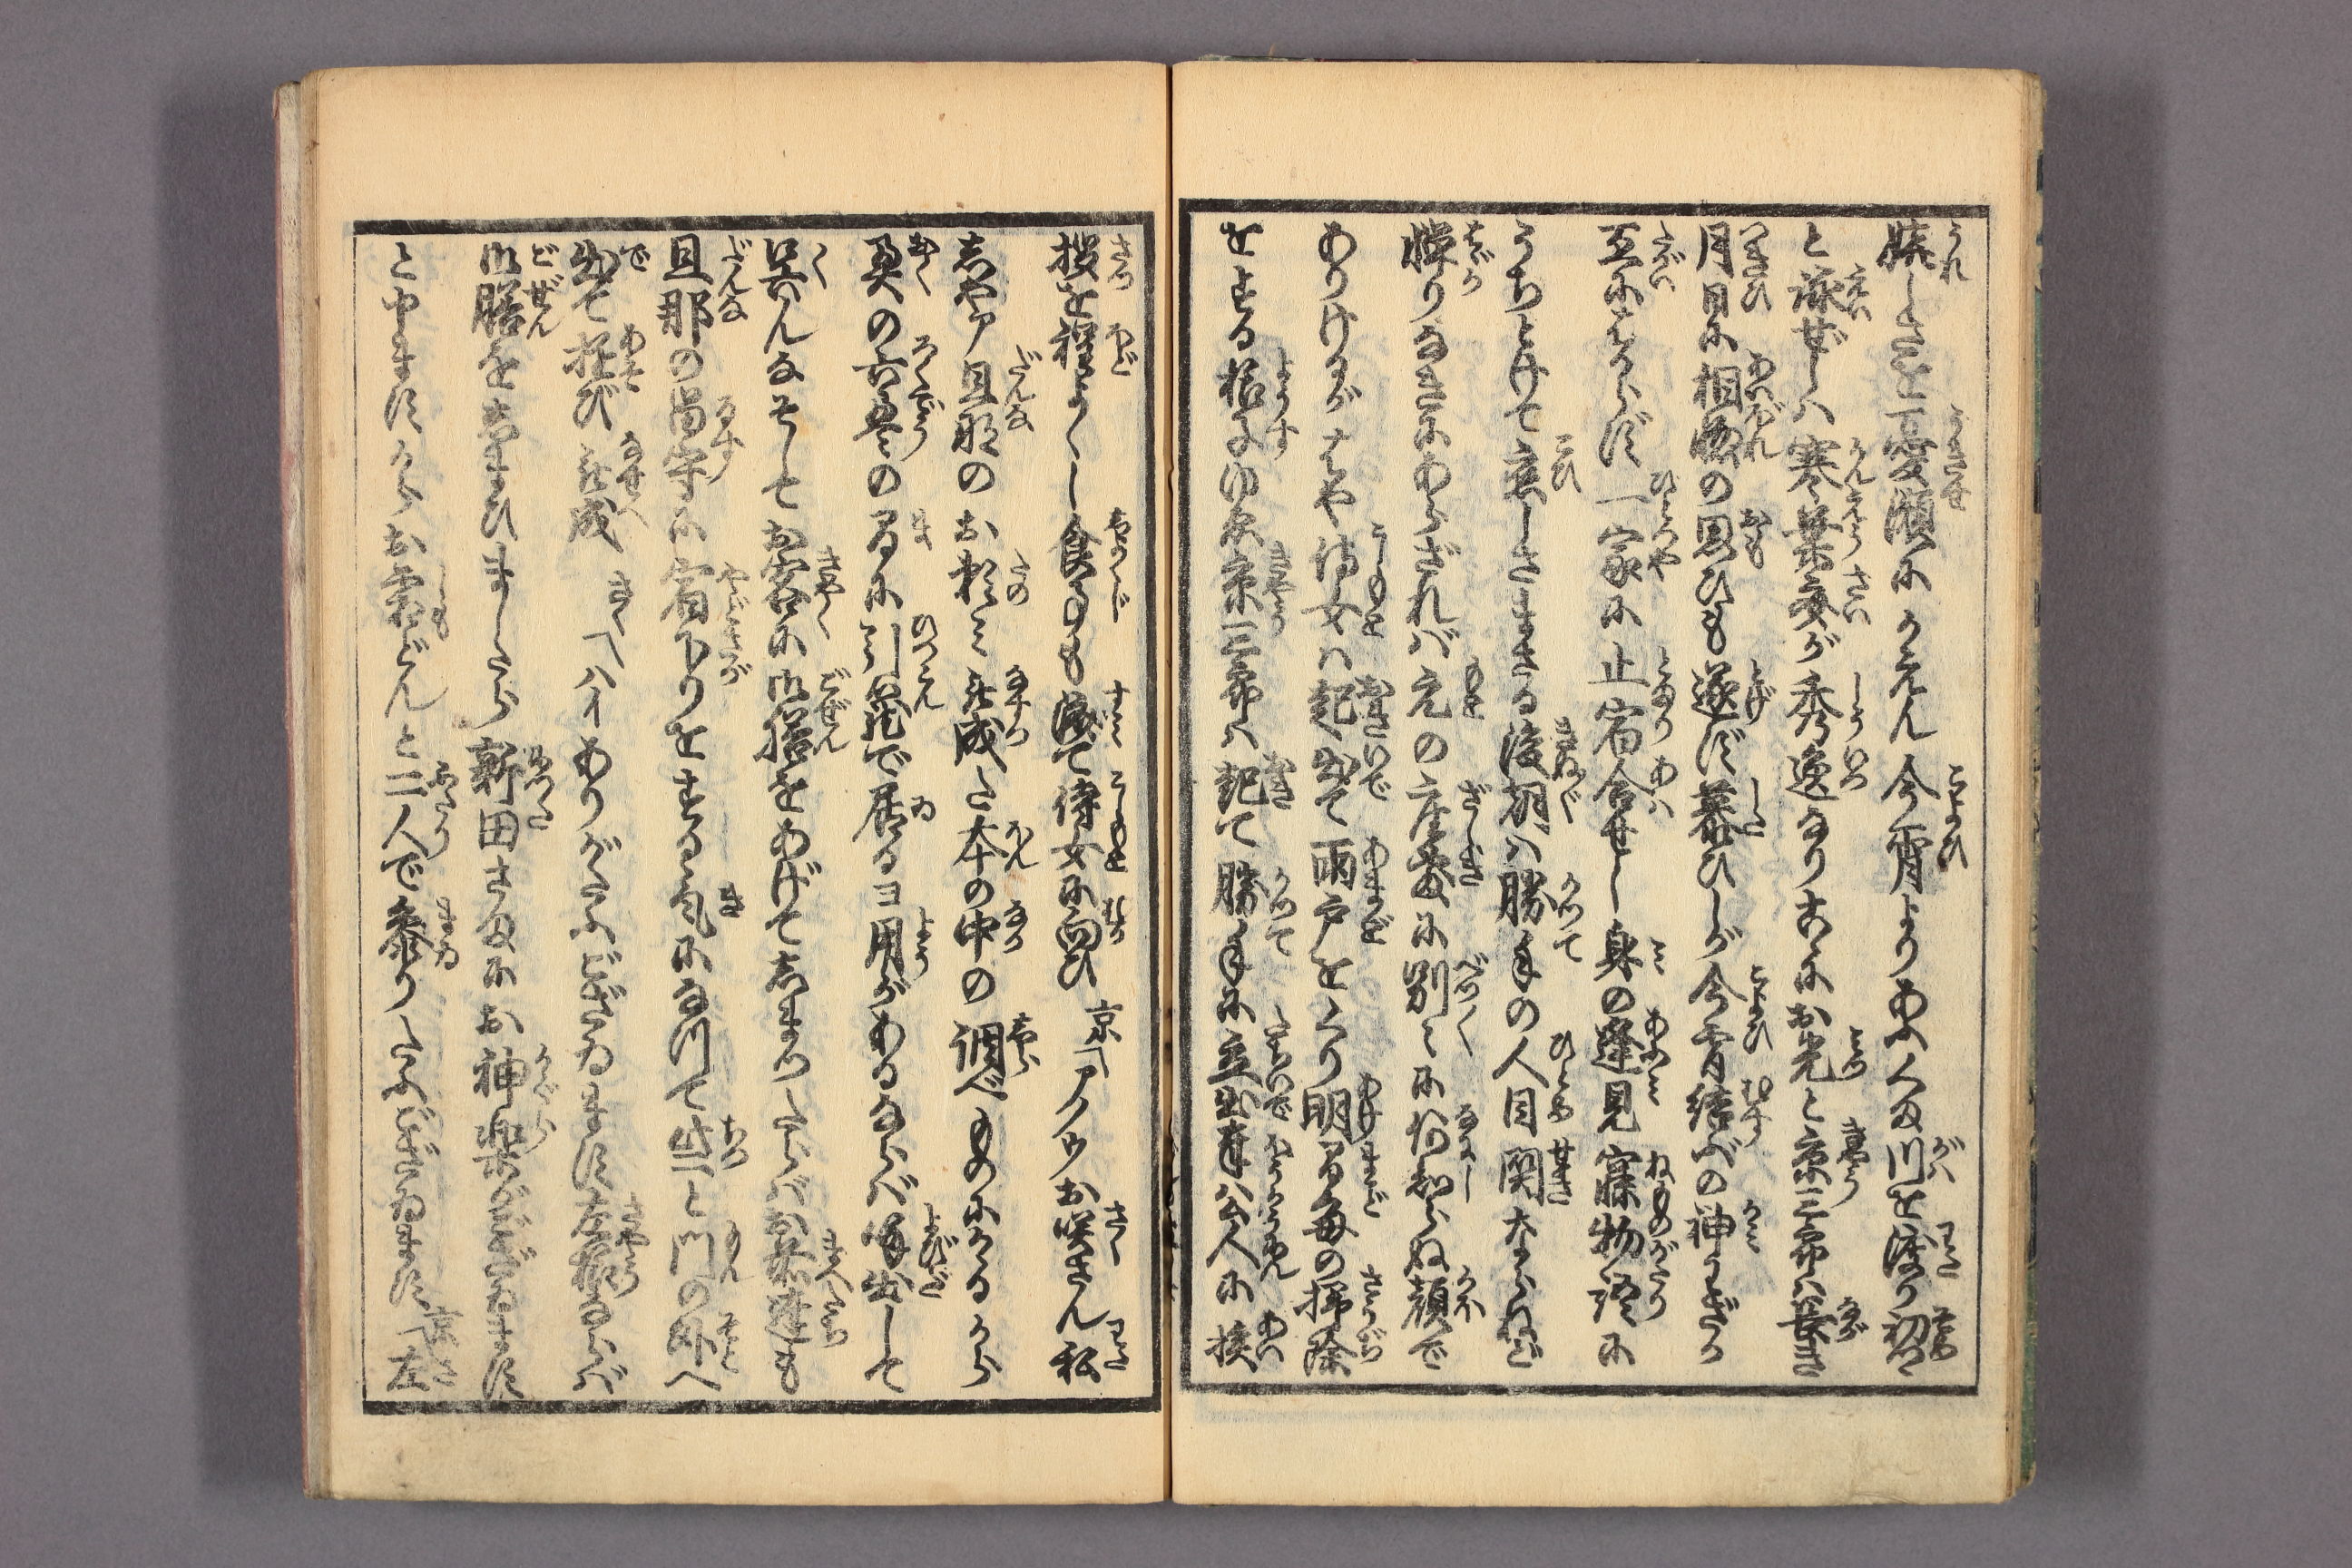 嬉しさと憂瀬にかへん今宵よりあふくま川を渡り初つ
と詠ぜしは寒葉斎が秀逸なりこゝにお光と京三郎は長き
月日に相惚の思ひも遂げず慕ひしが今宵結ぶの神まさり
互にはからず一家に止宿合せし身の逢見寐物語に
うちとけて恋しさまさる後朝は勝手の人目関たらねど
憚りなきにあらざれば元の座敷に別々に何知らぬ顔で
ありけるがはや侍女は起出て雨戸をくり明る毎の掃除
をする様子ゆゑ京三郎は起て勝手に立出奉公人に挨
拶を程よくし食事も済て侍女に向ひ 京「アノウお咲さん私
しやア旦那のお頼みに成た本の中の調べものにかゝるから
奥の六畳の間に引込で居るヨ用があるならば呼出して
呉んなそしてお客に御膳をあげてしまつたらばお前達も
旦那の留守に宿下りをする気になつて些と門の外へ
出て遊び に成 さく「ハイありがたふござゐます左様ならば
御膳をしまひましたら新田さまにお神楽がござゐます
と申ますからお霜どんと二人で参りたふござゐます 京「左